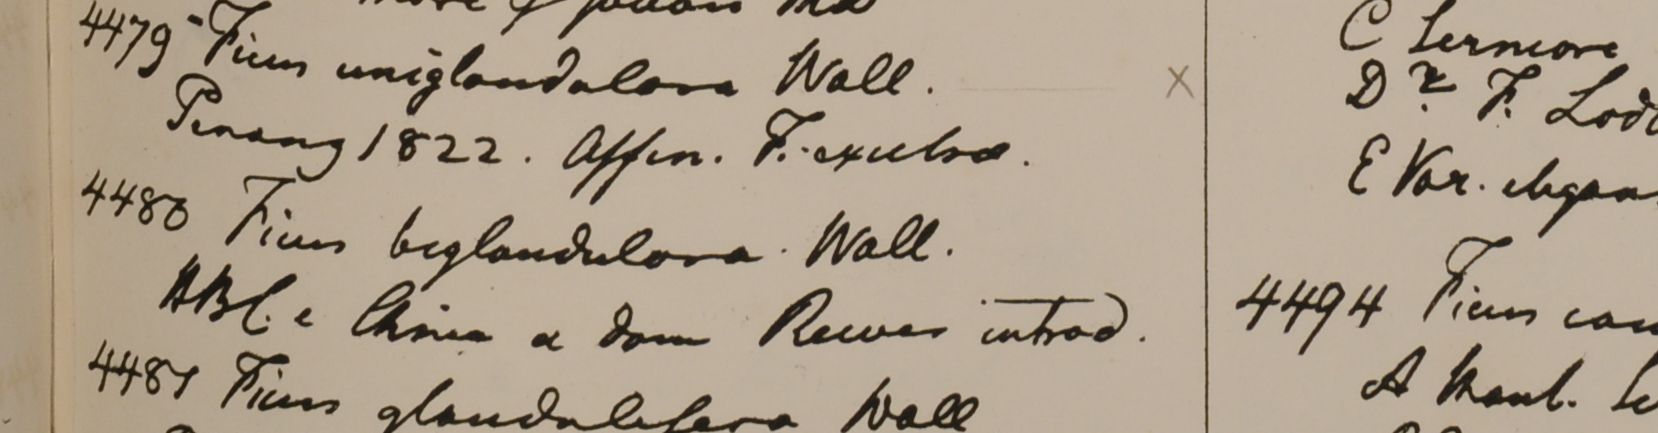 4479 Ficus uniglandulosa Wall.
Penang 1822. Affin. F. excelsae.
4480 Ficus biglandulosa. Wall.
HBC. e China a dom Reeves introd.
4481 Ficus glandulifera Wall
X
D r. F.
E Var. elegan
4494 Ficus
A